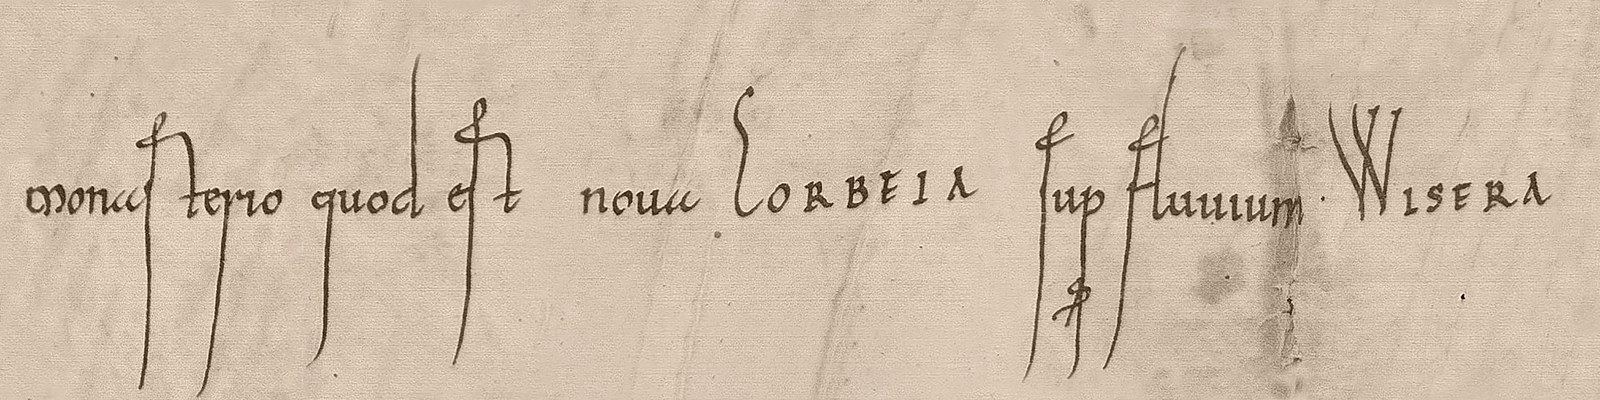 monasterio quod est noua CORBEIA sup fluuium · WISERA